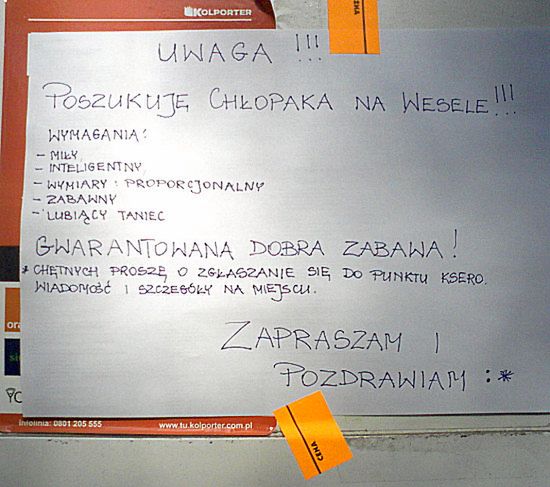 KOLPORTER
CENA
UWAGA !!!
POSZUKUJĘ CHŁOPAKA NA WESELE!!!
WYMAGANIA:
- MIŁY
- INTELIGENTNY
- WYMIARY : PROPORCJONALNY
- ZABAWNY
- LUBIĄCY TANIEC
GWARANTOWANA DOBRA ZABAWA!
* CHĘTNYCH PROSZĘ O ZGŁASZANIE SIĘ DO PUNKTU KSERO.
WIADOMOŚĆ I SZCZEGÓŁY NA MIEJSCU.
ZAPRASZAM I
POZDRAWIAM :*
Infolinia: 0801 205 555
www.tu.kolporter.com.pl
CENA